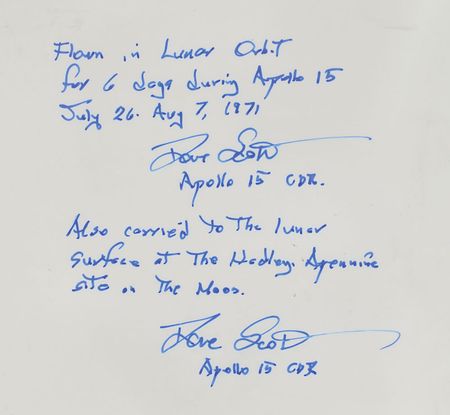 Flown in Lunar Orbit
for 6 days during Apollo 15
July 26. Aug 7, 1971
Dave Scott
Apollo 15 CDR.
Also carried to the lunar
surface at the Hadley. Apennine
site on the Moon.
Dave Scott
Apollo 15 CDR